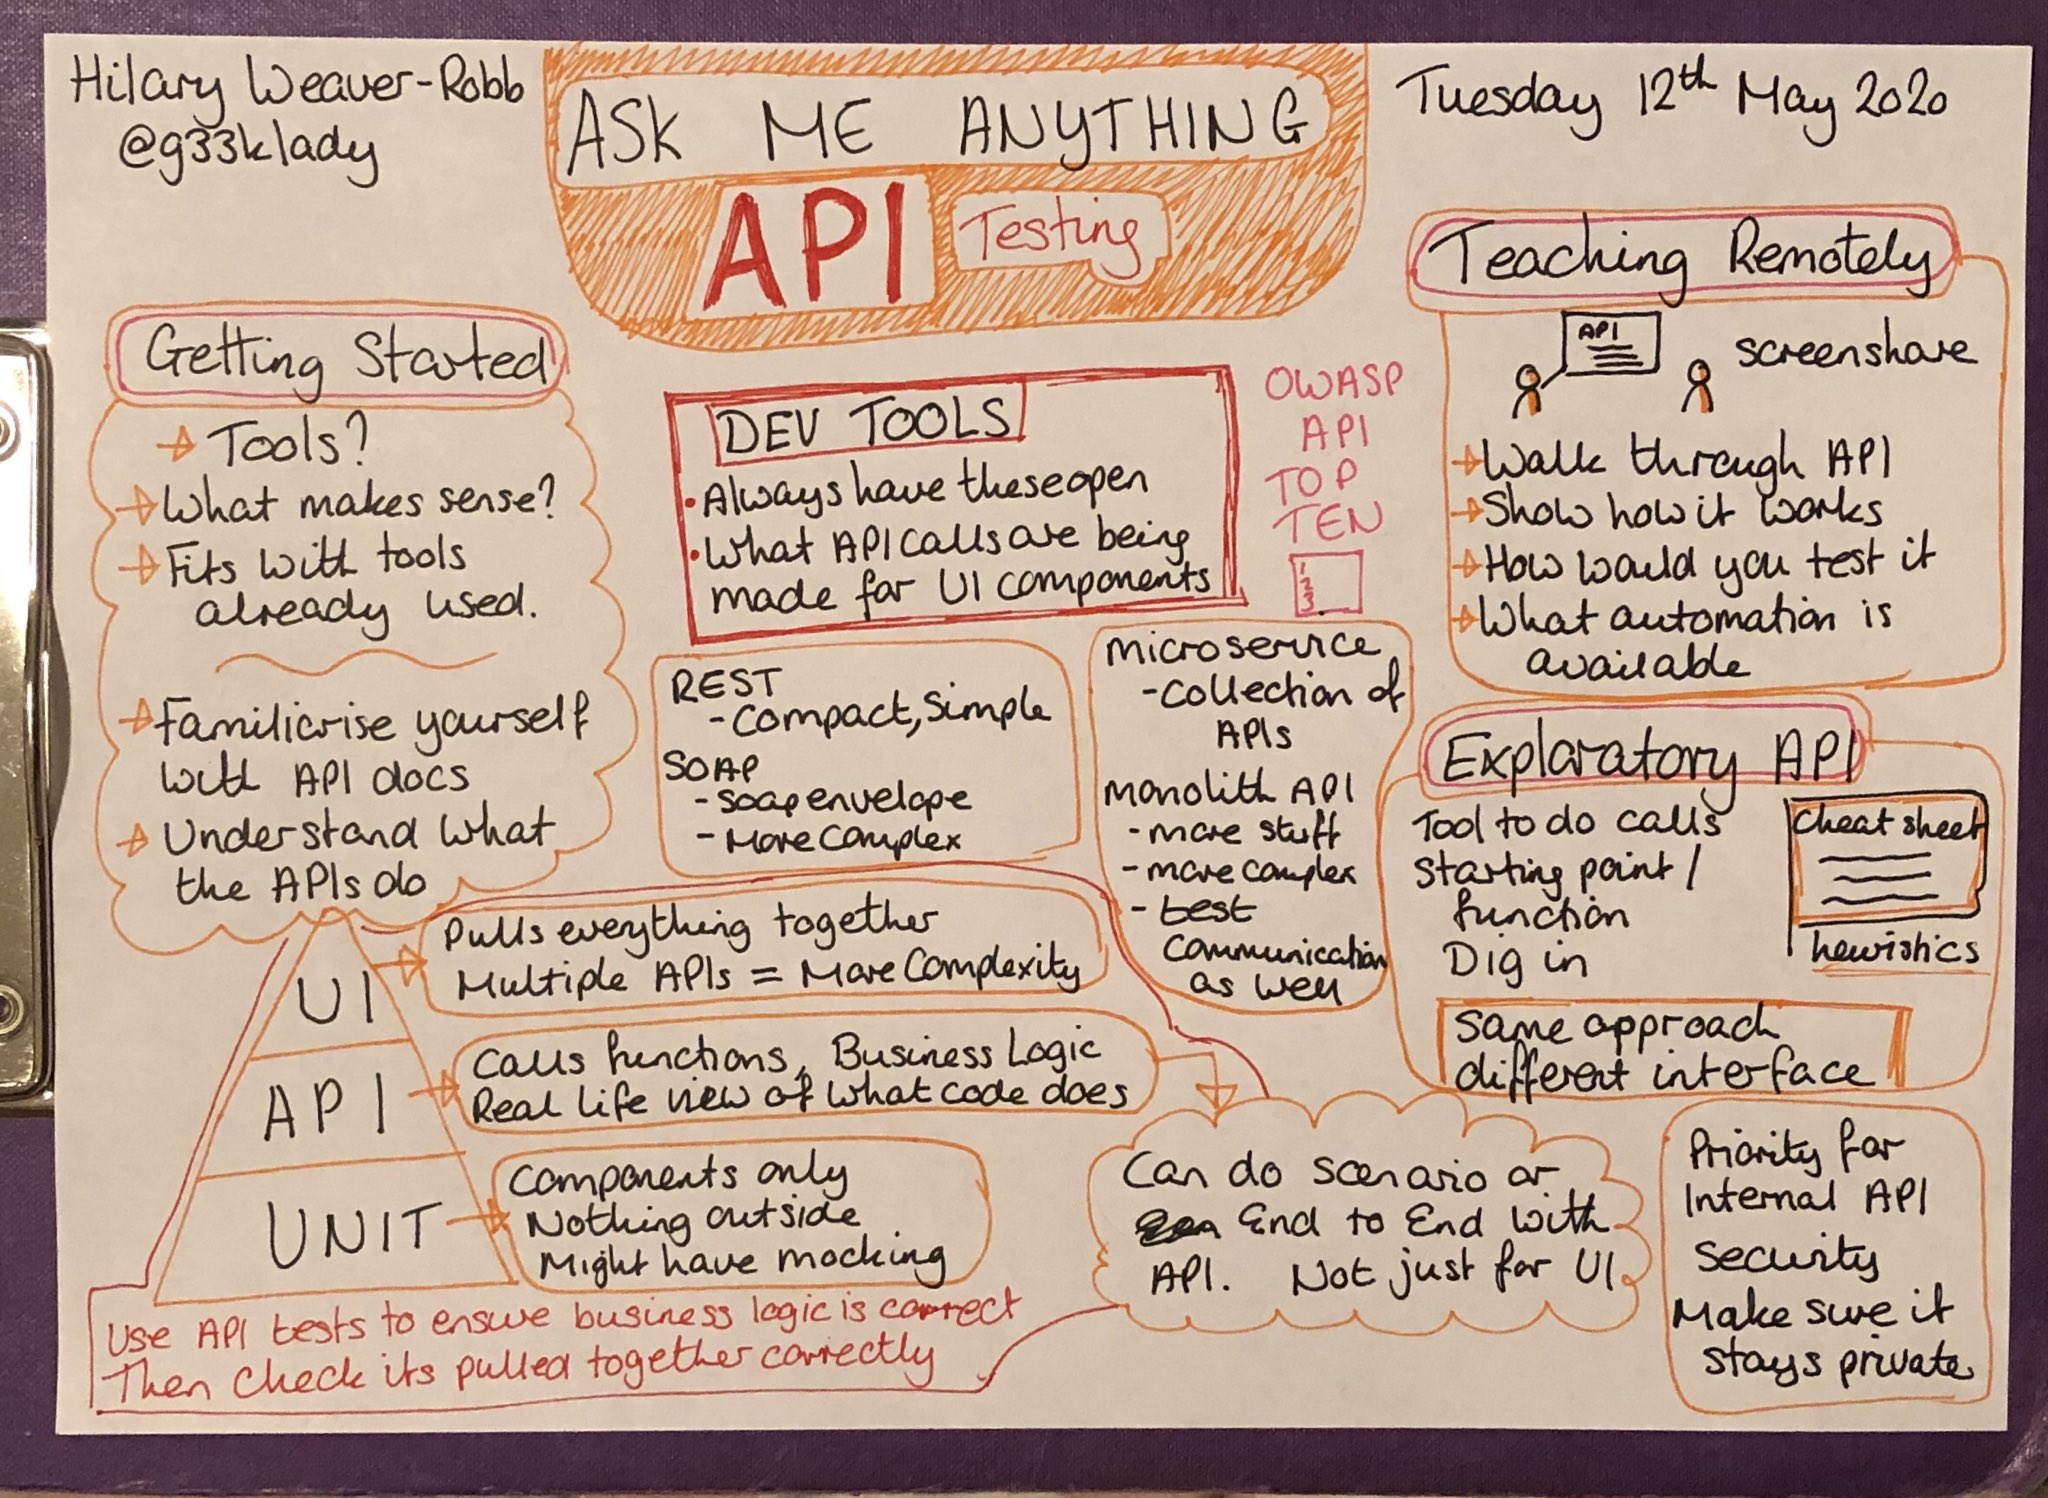 Hilary Weaver-Robb
@g33klady
ASK ME ANYTHING
API Testing
Tuesday 12th May 2020
Getting Started
Tools?
What makes sense?
Fits with tools
already used.
Familiarise yourself
with API docs
Understand what
the APIs do
DEV TOOLS
Always have these open
What API calls are being
made for UI components
OWASP
API
TOP
TEN
1
2
3
Teaching Remotely
API
screenshare
Walk through API
Show how it works
How would you test it
What automation is
available
REST
- Compact, Simple
SOAP
- soap envelope
- More complex
microservice
- collection of
APIs
monolith API
- more stuff
- more complex
- test
communication
as well
Exploratory API
Tool to do calls
starting point /
function
Dig in
Cheat sheet
heuristics
same approach
different interface
UI
Pulls everything together
Multiple APIs = More Complexity
API
Calls functions, Business Logic
Real life view of what code does
UNIT
Components only
Nothing outside
Might have mocking
Use API tests to ensure business logic is correct
Then check its pulled together correctly
Can do scenario or
End to End with
API. Not just for UI
Priority for
Internal API
Security
Make sure it
stays private